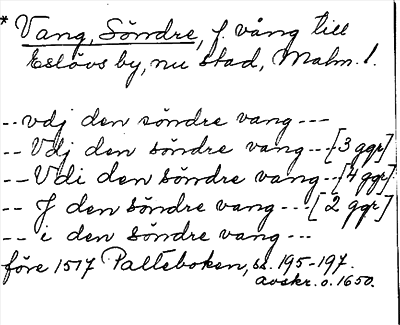 * Vang, Söndre, f vång till
Eslövs by, nu stad, Malm. l.
-- vdj den söndre vang ---
-- Vdj den söndre vang --- [3 ggr]
-- Vdi den söndre vang --- [4 ggr]
-- J den söndre vang --- [2 ggr]
-- i den söndre vang ---
före 1517 Palteboken, ss. 195-197.
avskr. o. 1650.